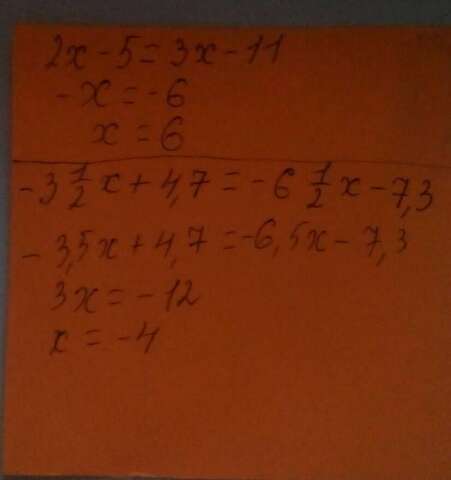 2x - 5 = 3x - 11
-x = -6
x = 6
-3 1/2 x + 4,7 = -6 1/2 x - 7,3
-3,5x + 4,7 = -6,5x - 7,3
3x = -12
x = -4